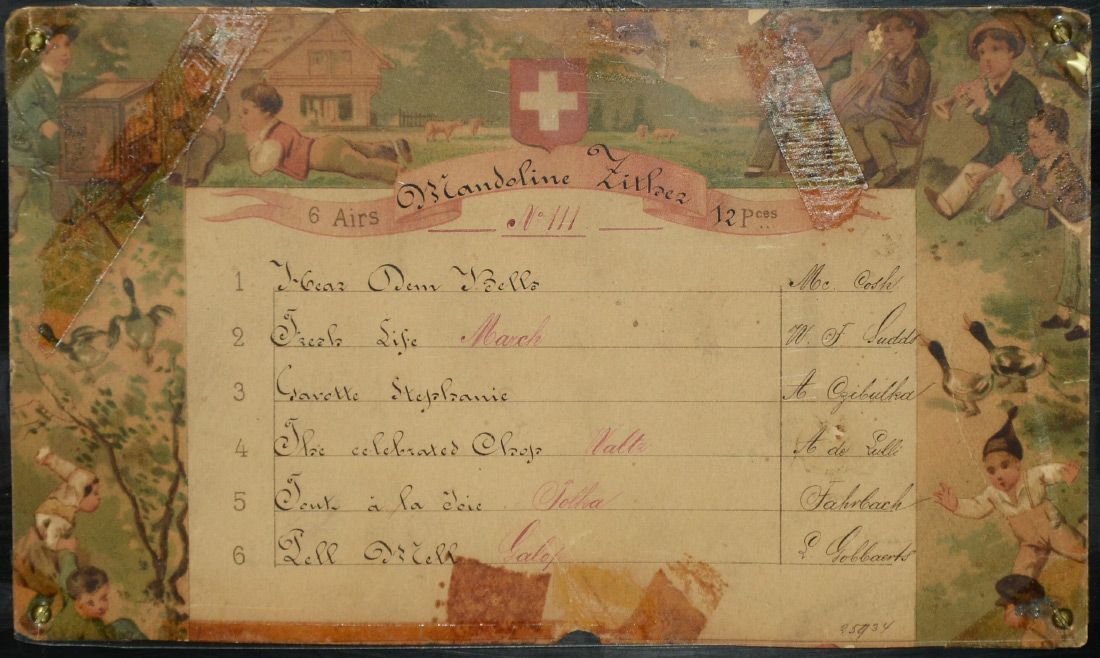 Mandoline Zither
6 Airs
12 Pces
No 111
1 Hear Dem Bells Mc. Cosh
2 Fresh Life March W. F Sudds
3 Gavotte Stephanie A Czibulka
4 The celebrated Chop Waltz A de Lulli
5 Tout à la Joie Polka Fahrbach
6 Pell Mell Galop L Gobbaerts
25934